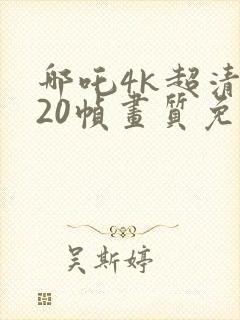 哪吒4k超清
20幀畫質免
吴斯婷